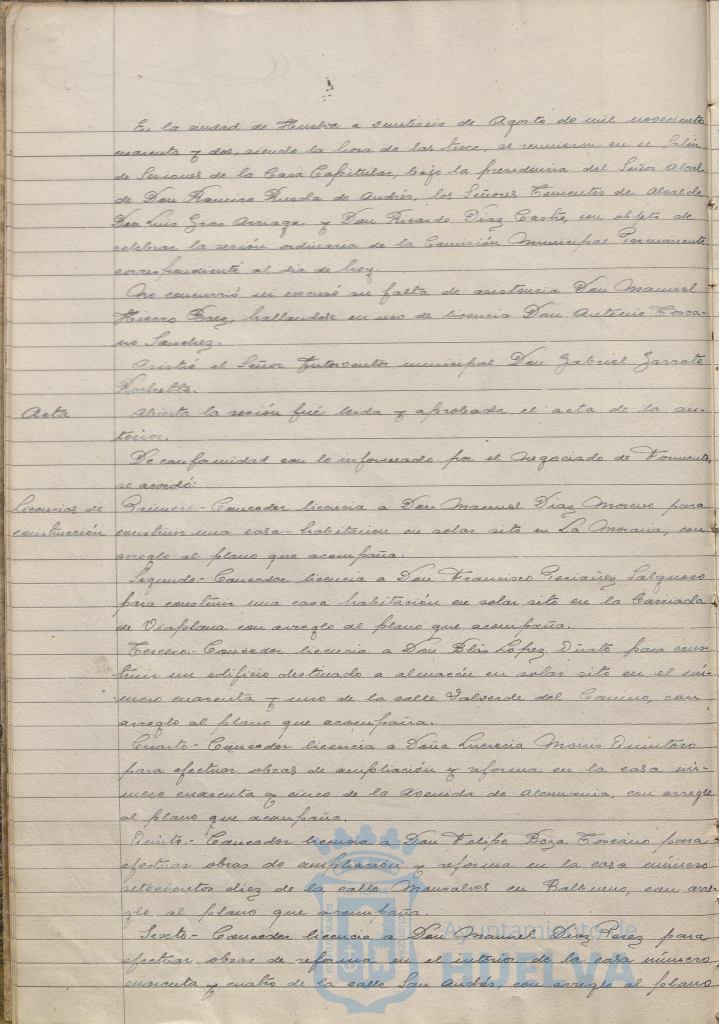 En la ciudad de Huelva a veintiseis de Agosto de mil novecientos
cuarenta y dos, siendo la hora de las trece, se reunieron en el Salón
de Sesiones de la Casa Capitular, bajo la presidencia del Señor Alcal-
de Don Ramiro Rueda de Andrés, los Señores Tenientes de Alcalde
Don Luis Gras Arriaga y Don Ricardo Diaz Castro, con objeto de
celebrar la sesión ordinaria de la Comisión Municipal Permanente
correspondiente al dia de hoy.
No concurrió ni excusó su falta de asistencia Don Manuel
Hierro Baez, hallandose en uso de licencia Don Antonio Tosca-
no Sanchez.
Asistió el Señor Interventor municipal Don Gabriel Garrote
Acta
Abierta la sesión fué leida y aprobada el acta de la an-
terior.
De conformidad con lo informado por el Negociado de Fomento,
se acordó:
Licencias de construcción
Primero.- Conceder licencia a Don Manuel Diaz Moreno para
construir una casa-habitacion en solar sito en La Morana, con
arreglo al plano que acompaña.
Segundo.- Conceder licencia a Don Francisco Periañez Salguero
para construir una casa habitación en solar sito en la Barriada
de Viaplana con arreglo al plano que acompaña.
Tercero.- Conceder licencia a Don Blás López Duarte para cons-
truir un edificio destinado a almacén en solar sito en el nú-
mero cuarenta y uno de la calle Valverde del Camino, con
arreglo al plano que acompaña.
Cuarto.- Conceder licencia a Doña Lucrecia Quintero
para efectuar obras de ampliación y reforma en la casa nú-
mero cuarenta y cinco de la Avenida de Alemania, con arreglo
al plano que acompaña.
Quinto.- Conceder licencia a Don Felipe Boza Toscano para
efectuar obras de ampliación y reforma en la casa número
setecientos diez de la calle Monsalves en Balbueno, con arre-
glo al plano que acompaña.
Sexto.- Conceder licencia a Don Manuel Diaz Perez para
efectuar obras de reforma en el interior de la casa número
cuarenta y cuatro de la calle San Andrés, con arreglo al plano
Ayuntamiento de
HUELVA